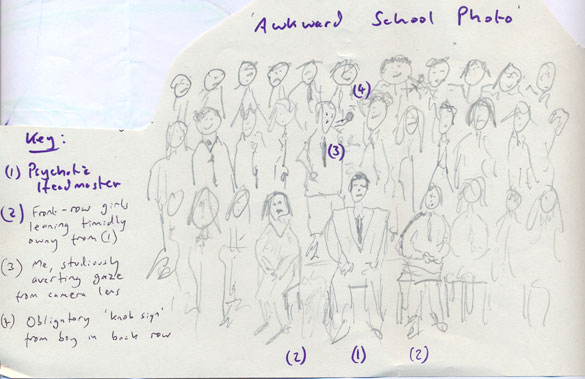 'Awkward School Photo'
(4)
(3)
Key:
(1) Psychotic
Headmaster
(2) Front-row girls
leaning timidly
away from (1)
(3) Me, studiously
averting gaze
from camera lens
(4) Obligatory 'knob sign'
from boy in back row
(2) (1) (2)